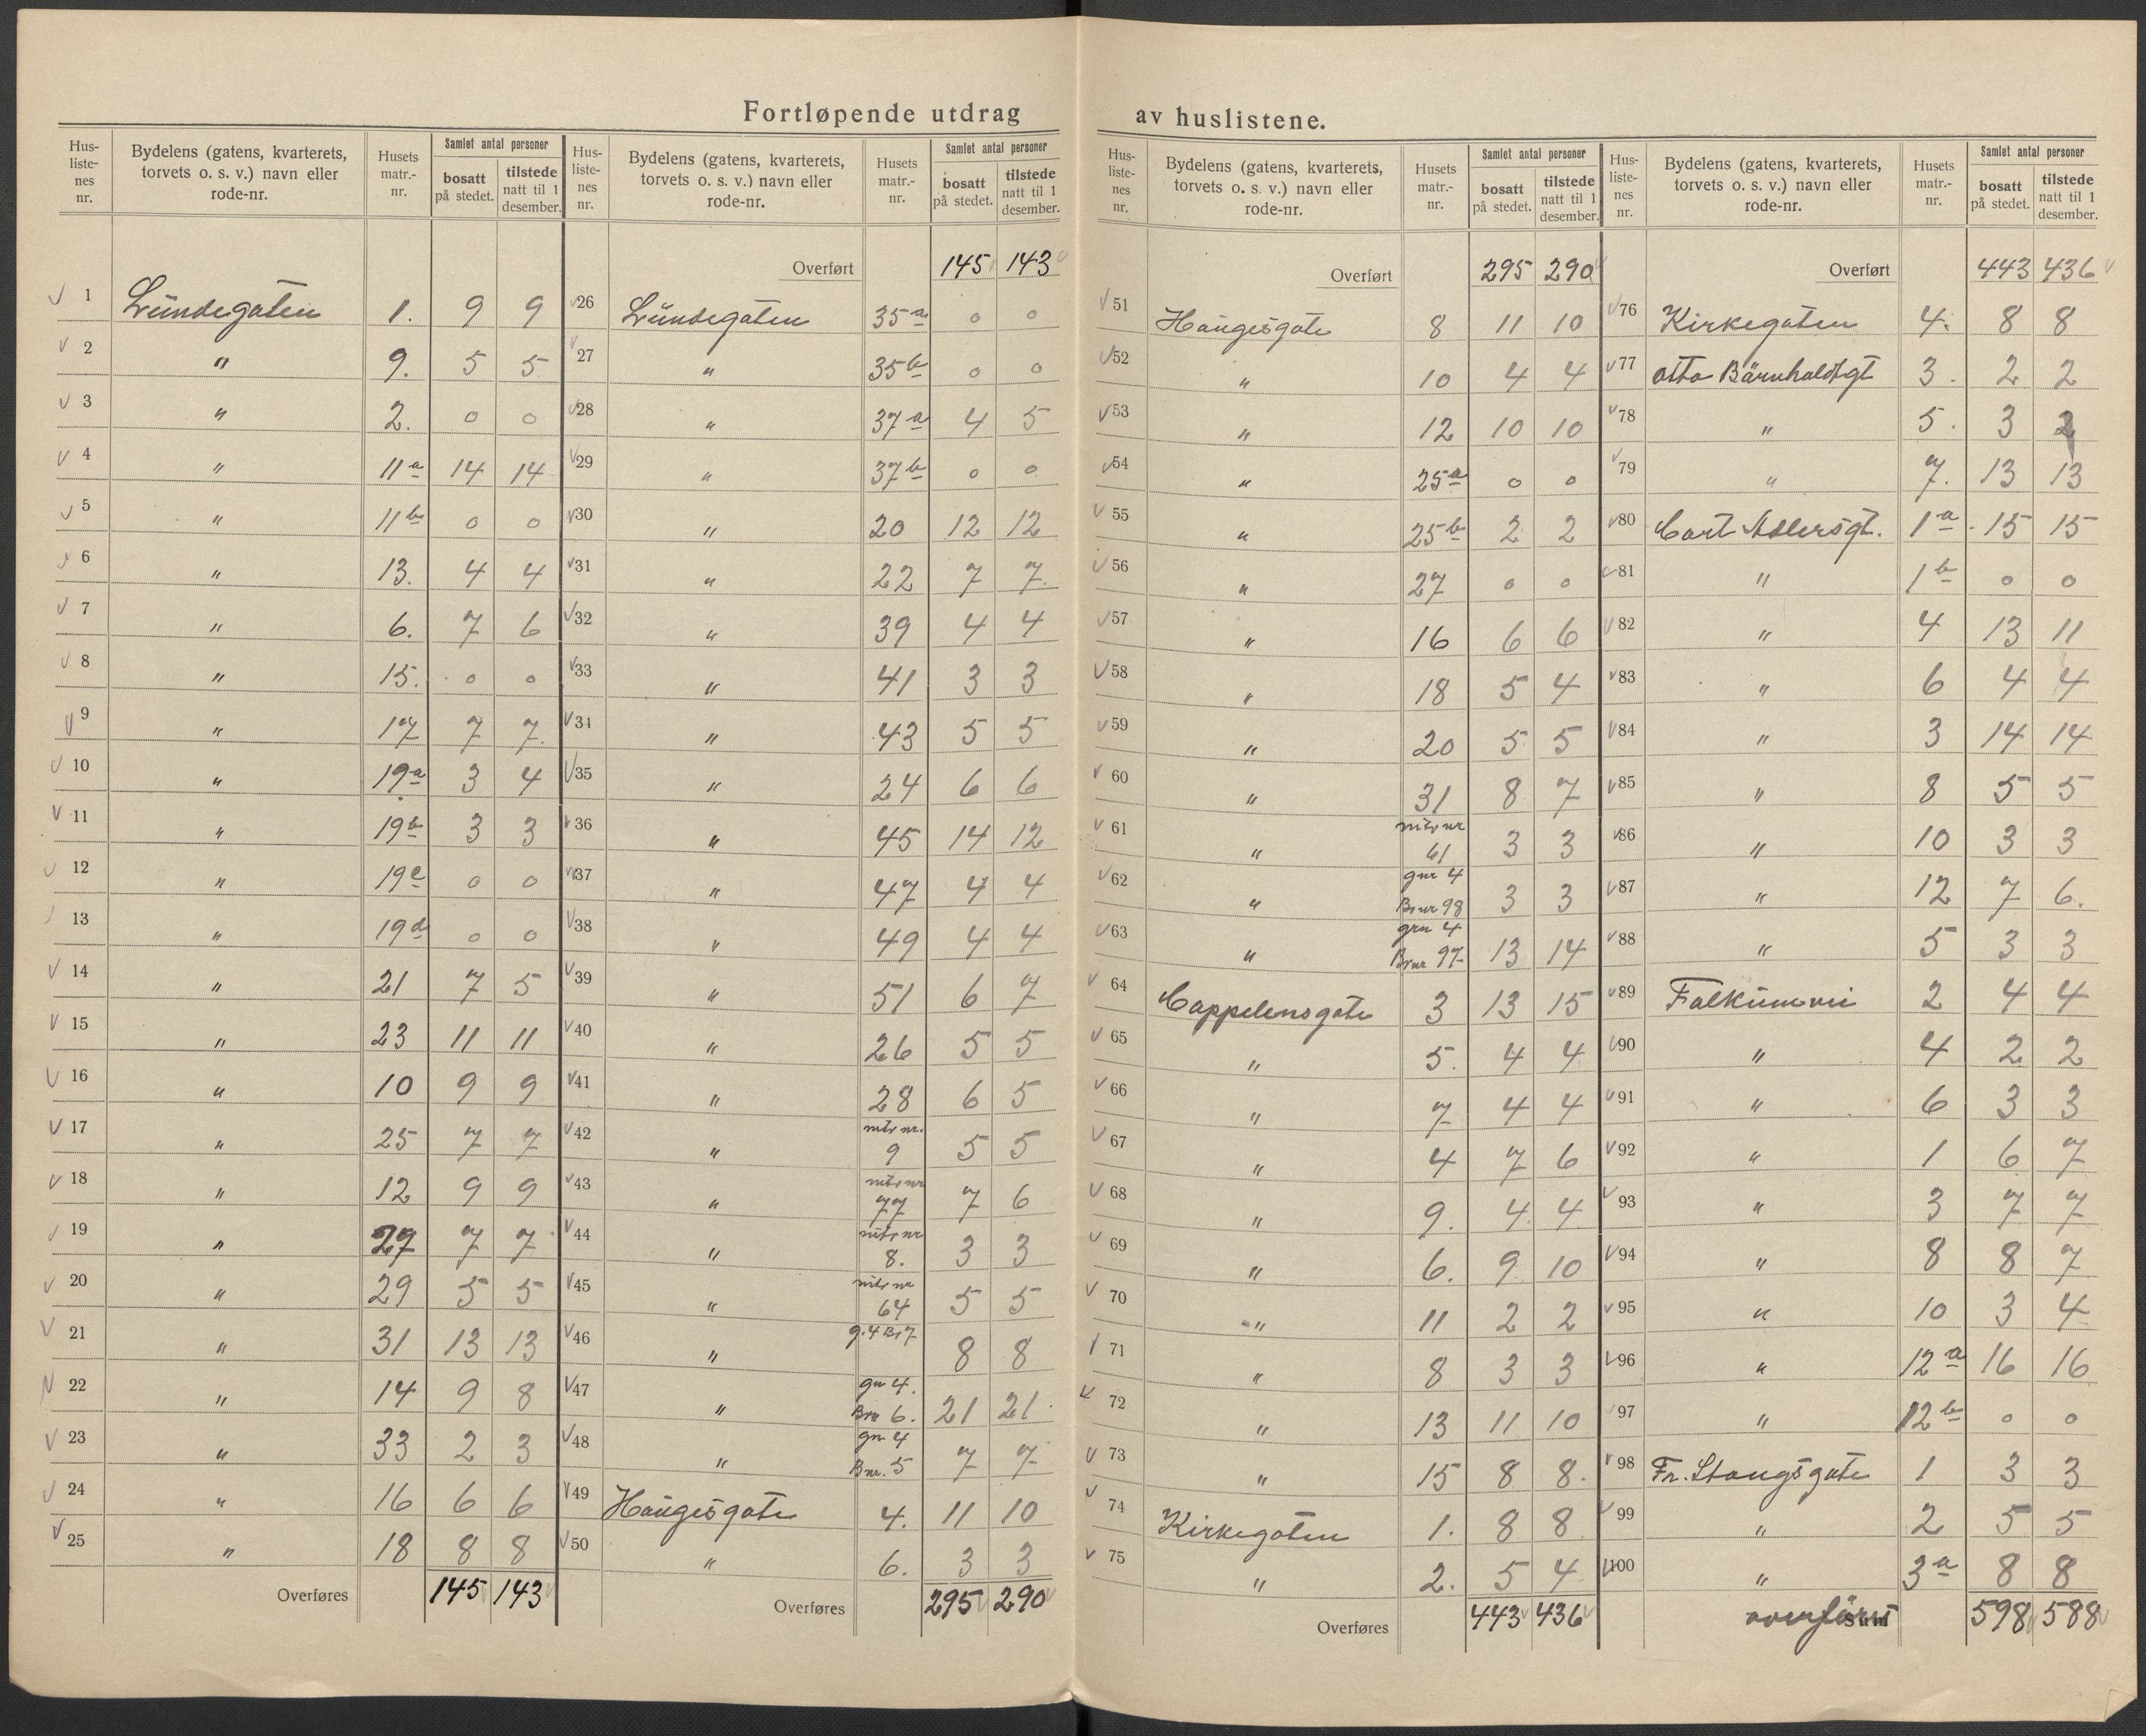 Fortløpende utdrag av huslistene.
Hus-liste-nes nr. | Bydelens (gatens, kvarterets, torvets o. s. v.) navn eller rode-nr. | Husets matr.-nr. | Samlet antal personer bosatt på stedet. | tilstede natt til 1 desember.
1 Lundegaten 1. 9 9
2 " 9. 5 5
3 " 2. 0 0
4 " 11a 14 14
5 " 11b 0 0
6 " 13. 4 4
7 " 6. 7 6
8 " 15. 0 0
9 " 17 7 7
10 " 19a 3 4
11 " 19b 3 3
12 " 19c 0 0
13 " 19d 0 0
14 " 21 7 5
15 " 23 11 11
16 " 10 9 9
17 " 25 7 7
18 " 12 9 9
19 " 27 7 7
20 " 29 5 5
21 " 31 13 13
22 " 14 9 8
23 " 33 2 3
24 " 16 6 6
25 " 18 8 8
Overføres 145 143
Hus-liste-nes nr. | Bydelens (gatens, kvarterets, torvets o. s. v.) navn eller rode-nr. | Husets matr.-nr. | Samlet antal personer bosatt på stedet. | tilstede natt til 1 desember.
Overført 145 143
26 Lundegaten 35a 0 0
27 " 35b 0 0
28 " 37a 4 5
29 " 37b 0 0
30 " 20 12 12
31 " 22 7 7
32 " 39 4 4
33 " 41 3 3
34 " 43 5 5
35 " 24 6 6
36 " 45 14 12
37 " 47 4 4
38 " 49 4 4
39 " 51 6 7
40 " 26 5 5
41 " 28 6 5
42 " mtr nr. 9 5 5
43 " mtr nr 77 7 6
44 " mtr nr 8. 3 3
45 " mtr nr 64 5 5
46 " g.4 Br 7. 8 8
47 " gn 4. Bnr 6. 21 21
48 " gn 4 Bnr. 5 7 7
49 Haugesgate 4. 11 10
50 " 6. 3 3
Overføres 295 290
Hus-liste-nes nr. | Bydelens (gatens, kvarterets, torvets o. s. v.) navn eller rode-nr. | Husets matr.-nr. | Samlet antal personer bosatt på stedet. | tilstede natt til 1 desember.
Overført 295 290
51 Haugesgate 8 11 10
52 " 10 4 4
53 " 12 10 10
54 " 25a 0 0
55 " 25b 2 2
56 " 27 0 0
57 " 16 6 6
58 " 18 5 4
59 " 20 5 5
60 " 31 8 7
61 " mtr nr 61 3 3
62 " gnr 4 Bnr 98 3 3
63 " gnr 4 Bnr 97 13 14
64 Cappelensgate 3 13 15
65 " 5. 4 4
66 " 7 4 4
67 " 4 7 6
68 " 9. 4 4
69 " 6. 9 10
70 " 11 2 2
71 " 8 3 3
72 " 13 11 10
73 " 15 8 8.
74 Kirkegaten 1. 8 8
75 " 2. 5 4
Overføres 443 436
Hus-liste-nes nr. | Bydelens (gatens, kvarterets, torvets o. s. v.) navn eller rode-nr. | Husets matr.-nr. | Samlet antal personer bosatt på stedet. | tilstede natt til 1 desember.
Overført 443 436
76 Kirkegaten 4. 8 8
77 Otto Bärnholdtgt 3. 2 2
78 " 5. 3 2
79 " 7. 13 13
80 Cort Adlersgt. 1a 15 15
81 " 1b 0 0
82 " 4 13 11
83 " 6 4 4
84 " 3 14 14
85 " 8 5 5
86 " 10 3 3
87 " 12 7 6.
88 " 5 3 3
89 Falkumvei 2 4 4
90 " 4 2 2
91 " 6 3 3
92 " 1 6 7
93 " 3 7 7
94 " 8 8 7
95 " 10 3 4
96 " 12a 16 16
97 " 12b 0 0
98 Fr. Stangsgate 1 3 3
99 " 2 5 5
100 " 3a 8 8
overføres 598 588